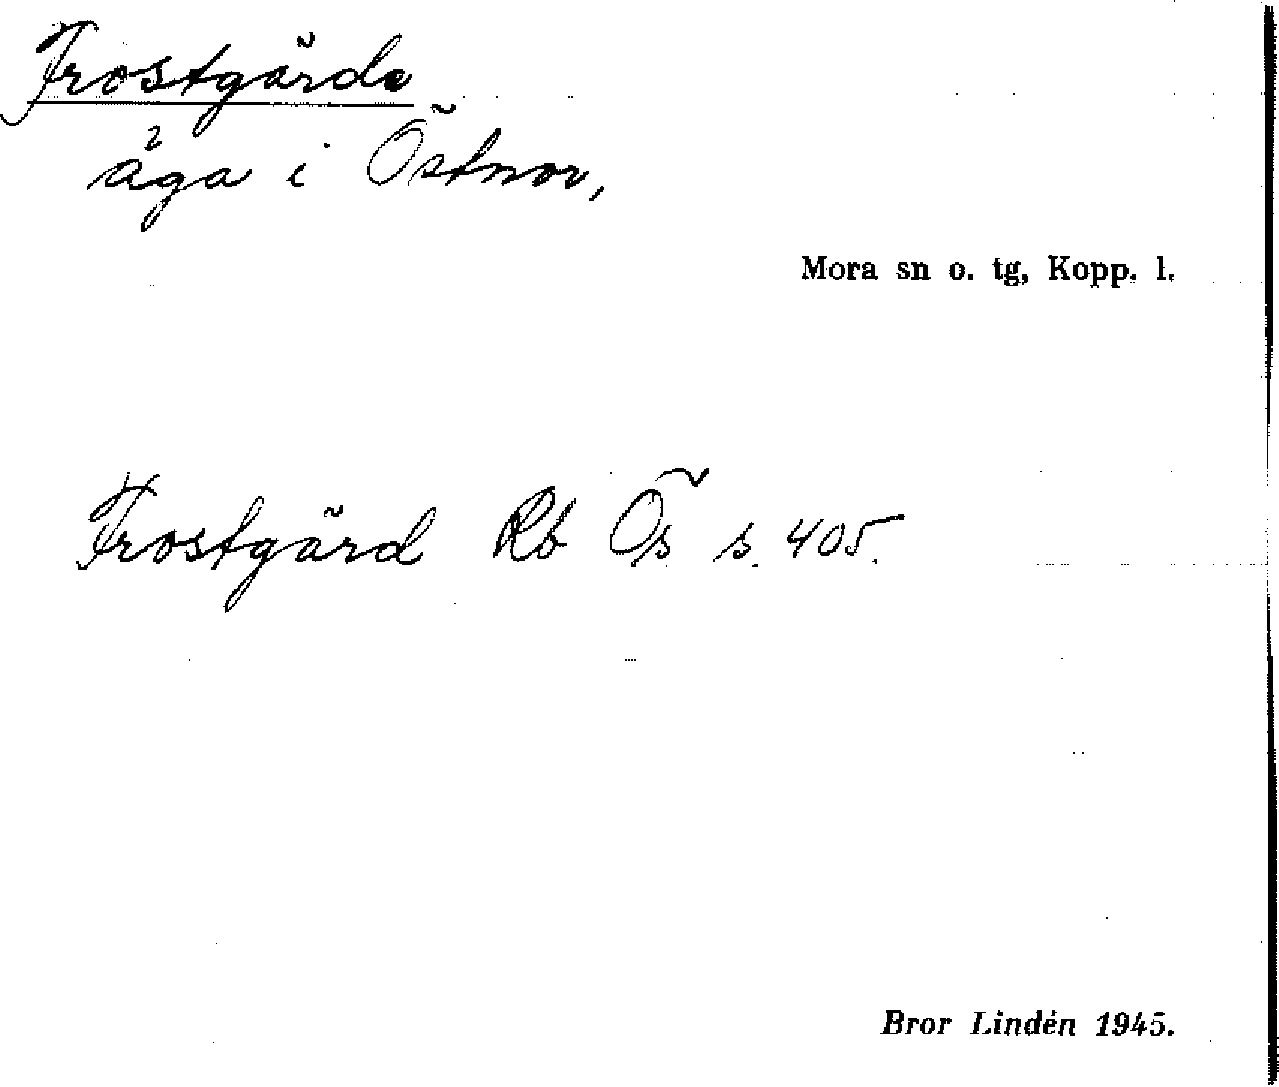 Frostgärde
äga i Östnor,
Mora sn o. tg, Kopp. l.
Frostgärd Rb Ös s. 405.
Bror Lindén 1945.